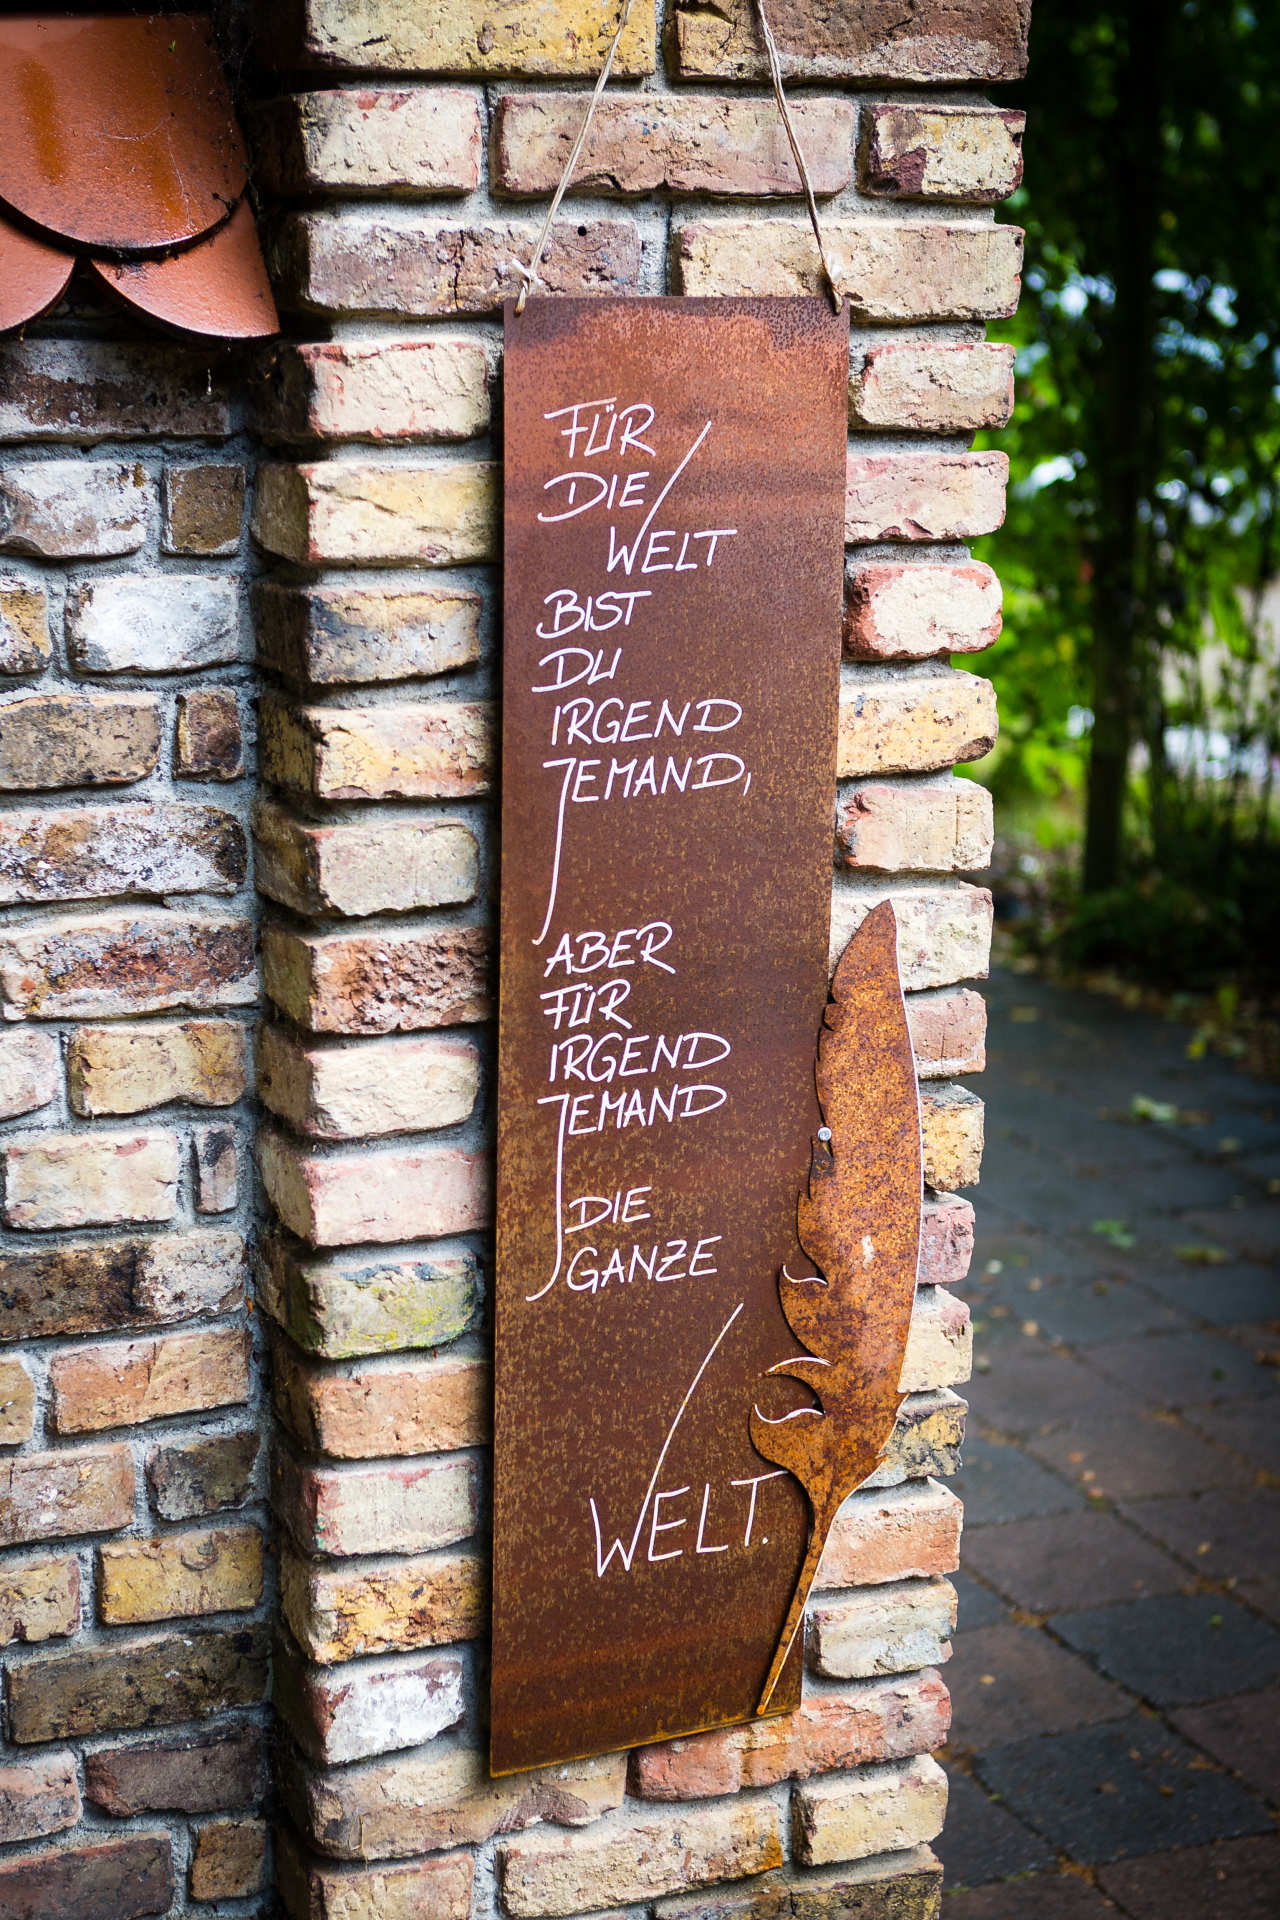 FÜR
DIE
WELT
BIST
DU
IRGEND
JEMAND,
ABER
FÜR
IRGEND
JEMAND
DIE
GANZE
WELT.